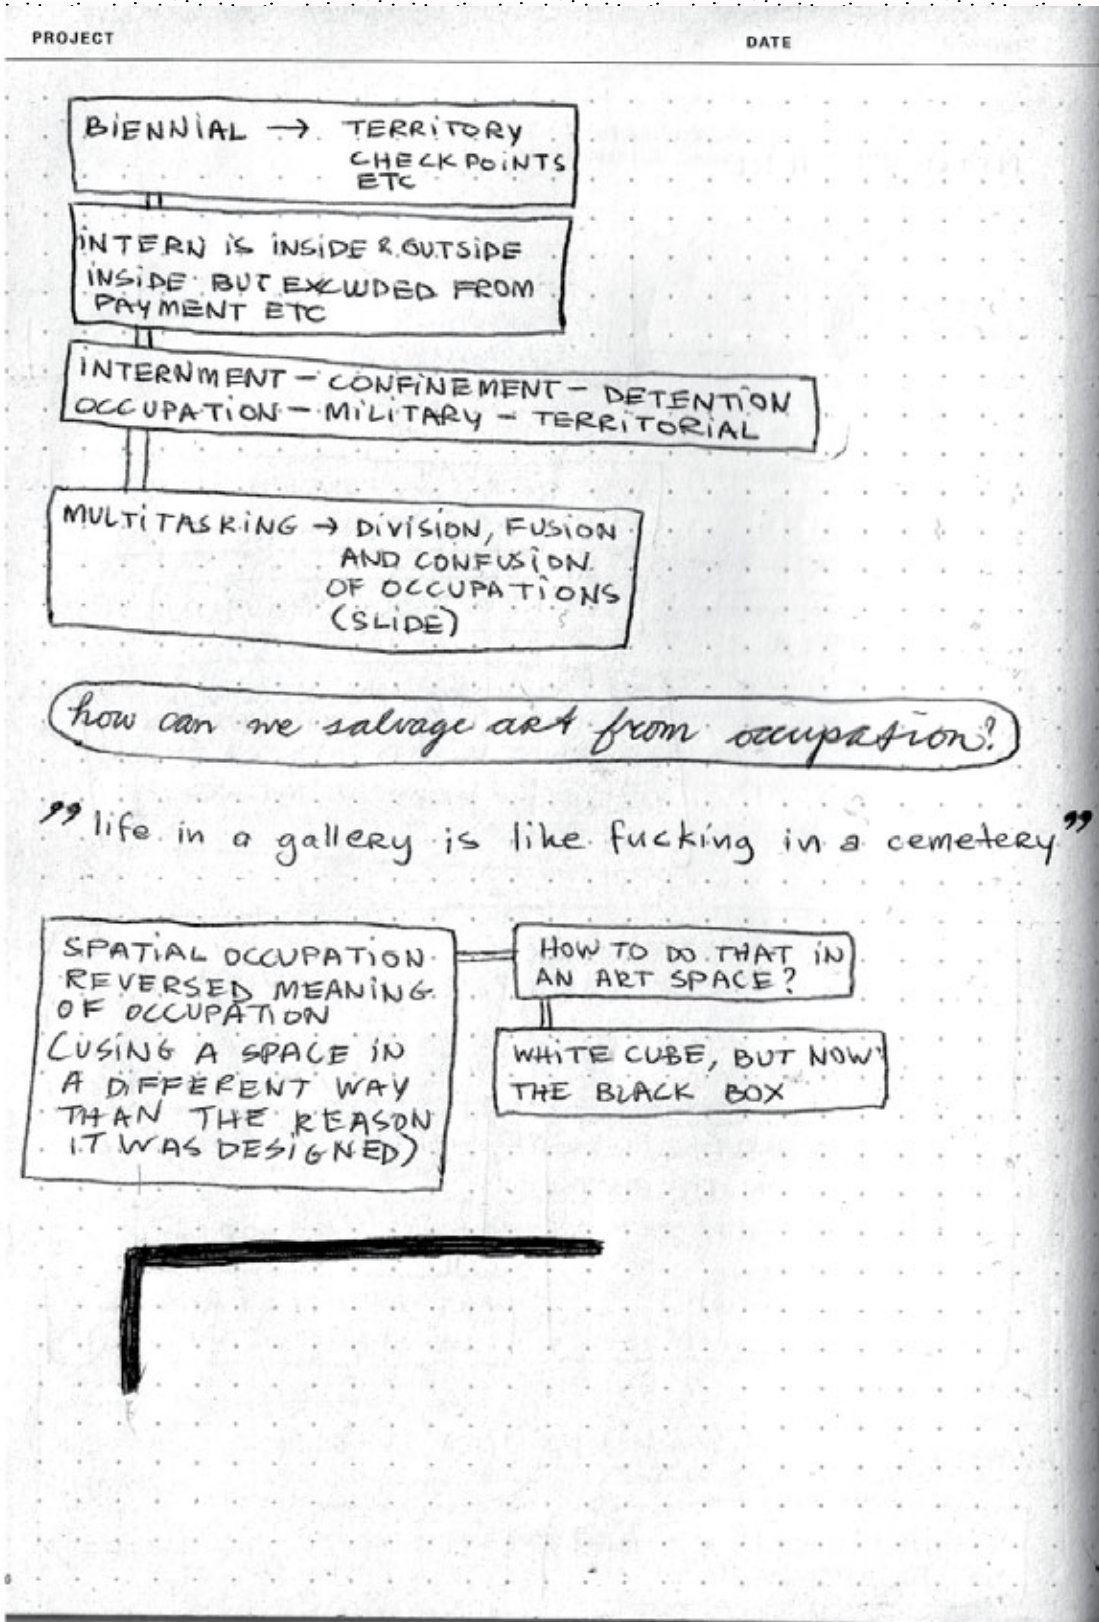 PROJECT
DATE
BIENNIAL → TERRITORY
CHECKPOINTS
ETC
INTERN IS INSIDE & OUTSIDE
INSIDE BUT EXCLUDED FROM
PAYMENT ETC
INTERNMENT – CONFINEMENT – DETENTION
OCCUPATION – MILITARY – TERRITORIAL
MULTITASKING → DIVISION, FUSION
AND CONFUSION
OF OCCUPATIONS
(SLIDE)
how can we salvage art from occupation?
”life in a gallery is like fucking in a cemetery”
SPATIAL OCCUPATION
REVERSED MEANING
OF OCCUPATION
(USING A SPACE IN
A DIFFERENT WAY
THAN THE REASON
IT WAS DESIGNED)
HOW TO DO THAT IN
AN ART SPACE?
WHITE CUBE, BUT NOW
THE BLACK BOX